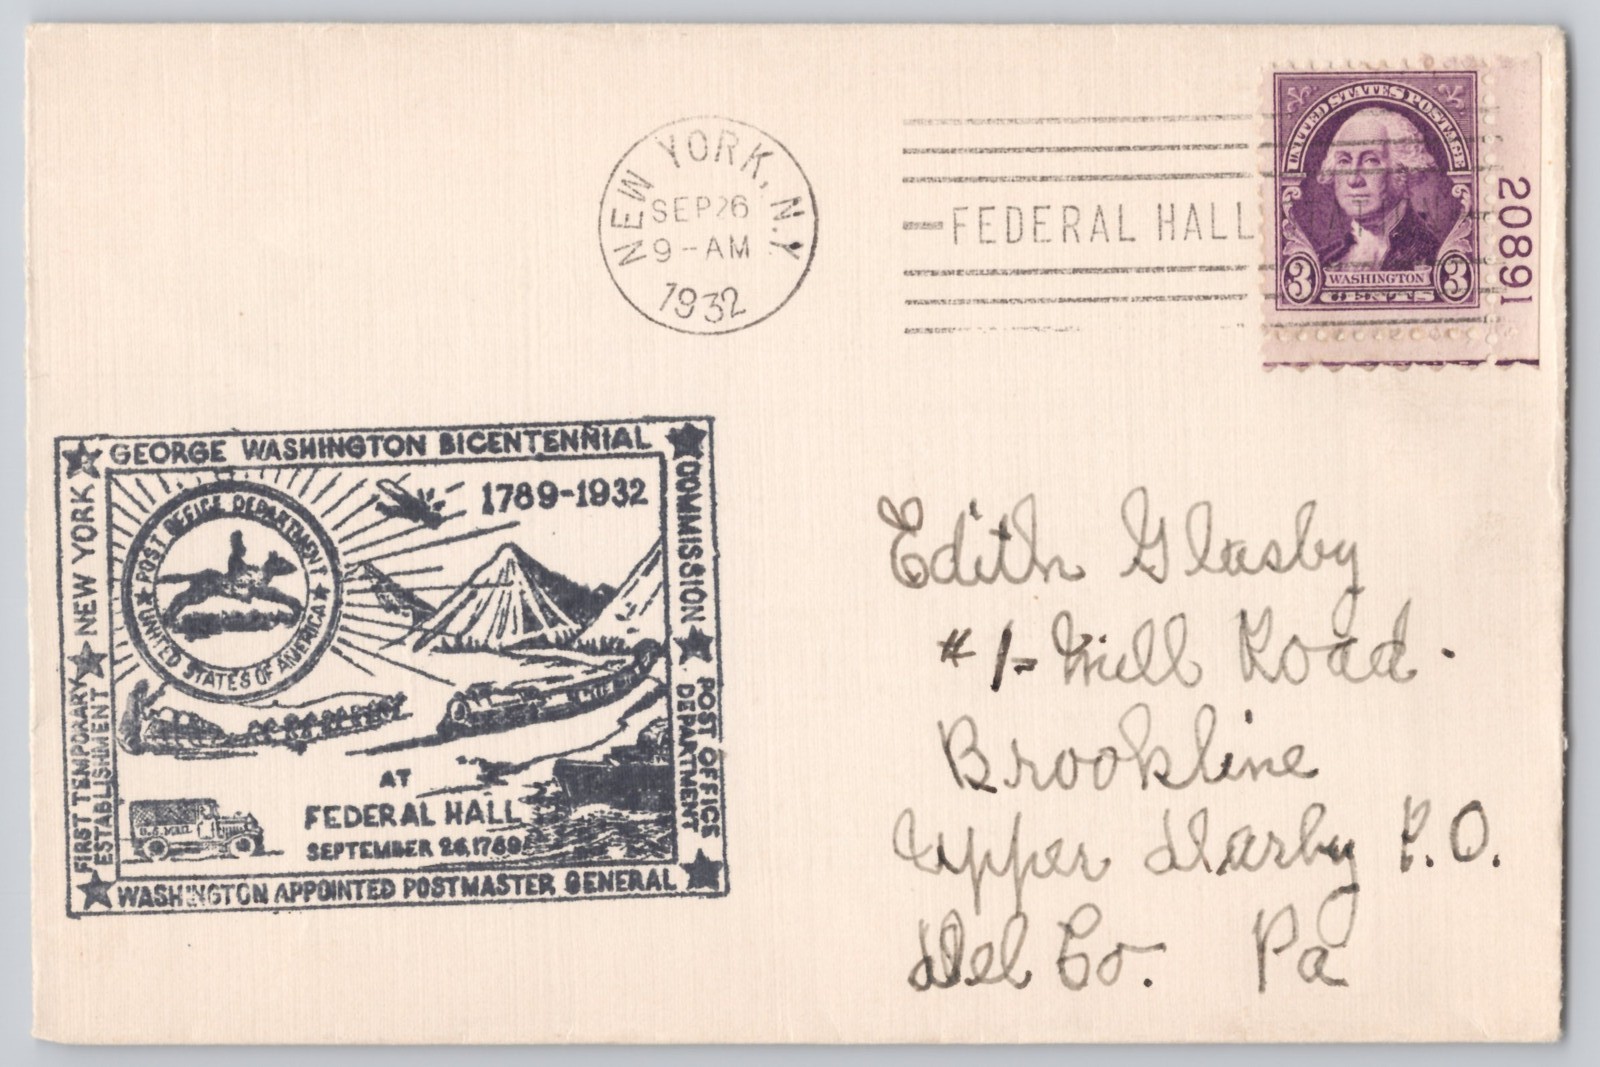 NEW YORK, N.Y.
SEP 26
9-AM
1932
FEDERAL HALL
UNITED STATES POSTAGE
3 WASHINGTON 3
CENTS
20891
GEORGE WASHINGTON BICENTENNIAL
COMMISSION
POST OFFICE
DEPARTMENT
NEW YORK
FIRST TEMPORARY
ESTABLISHMENT
1789-1932
POST OFFICE DEPARTMENT
UNITED STATES OF AMERICA
U.S. MAIL
AT
FEDERAL HALL
SEPTEMBER 26, 1789
WASHINGTON APPOINTED POSTMASTER GENERAL
Edith Glasby
# 1- Mill Road.
Brookline
Upper Darby P.O.
Del Co. Pa